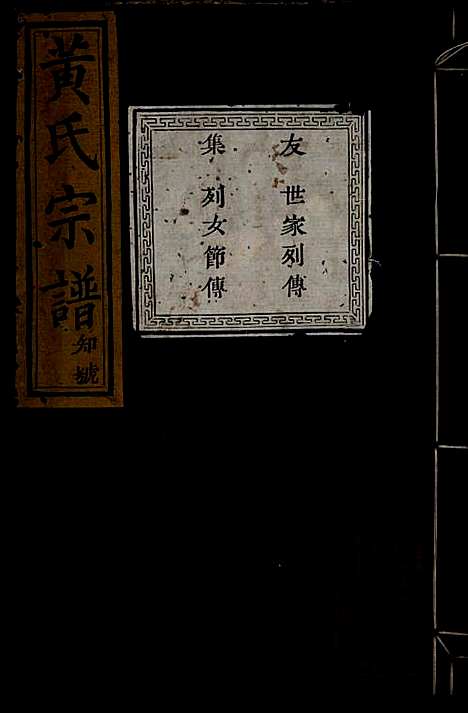 黃氏宗譜
知號
友 世家列傳
集 列女節傳